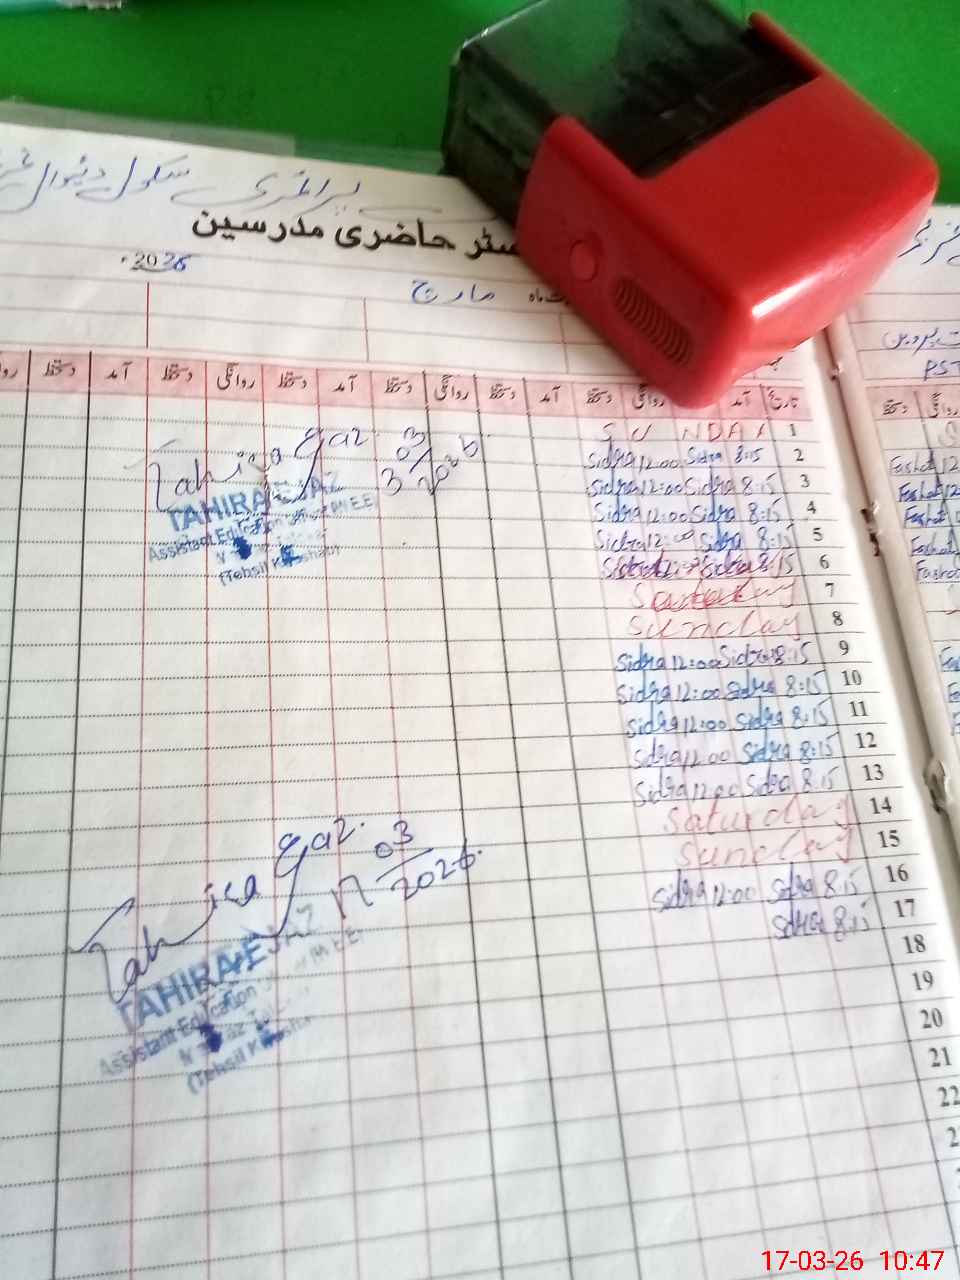 پرائمری سکول
رجسٹر حاضری مدرسین
2026
مارچ
تاریخ آمد دستخط روانگی دستخط آمد دستخط روانگی دستخط آمد دستخط روانگی دستخط آمد دستخط
SUNDAY 1
Sidra 12:00 Sidra 8:15 2
Sidra 12:00 Sidra 8:15 3
Sidra 12:00 Sidra 8:15 4
Sidra 12:00 Sidra 8:15 5
Sidra 12:00 Sidra 8:15 6
Saturday 7
Sunday 8
Sidra 12:00 Sidra 8:15 9
Sidra 12:00 Sidra 8:15 10
Sidra 12:00 Sidra 8:15 11
Sidra 12:00 Sidra 8:15 12
Sidra 12:00 Sidra 8:15 13
Saturday 14
Sunday 15
Sidra 12:00 Sidra 8:15 16
Sidra 8:15 17
18
19
20
21
22
Tahira Ejaz 03
3/2026
TAHIRA EJAZ
Assistant Education
(Tehsil
Tahira Ejaz 03
17 2026
TAHIRA EJAZ
Assistant Education
(Tehsil
PST
روانگی دستخط
17-03-26 10:47